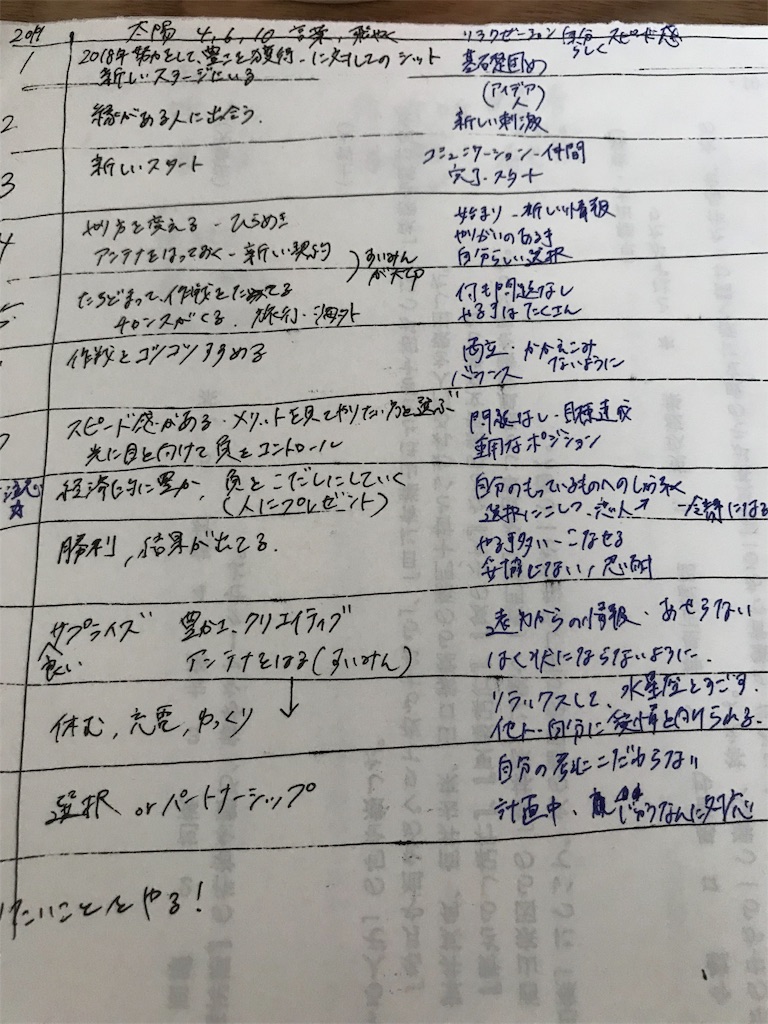 2019 太陽 4, 6, 10 言葉, リラクゼーション 自分らしく スピード感
1 2018年 豊かさ 獲得 - に対しての シット 基礎固め
新しいステージにいる
(アイデア 人)
2 縁がある人に出会う. 新しい刺激
新しいスタート コミュニケーション-仲間
3 完了. スタート
4 やり方を変える - ひらめき 始まり - 新しい情報
アンテナをはっておく - 新しい契約 )すいみんが大切 やりがいのある
自分らしい選択
たちどまって, 作戦をためてる 何も問題なし
チャンスがくる. 旅行・海外 やる事はたくさん
作戦をコツコツすすめる 両立・かかえこみないように
バランス
スピード感がある・メリットを見てやりたい方を選ぶ 問題なし・目標達成
先に目を向けて負をコントロール 重用なポジション
注意☆ 経済的に豊か, 負をこだしにしていく 自分のもっているものへのしゅうちゃく
(人にプレゼント) 選択に 恋人
勝利, 結果が出てる. やる事多い-こなせる
妥協しない, 忍耐
サプライズ 豊かさ, クリエイティブ 遠方からの情報・あせらない
良い アンテナをはる(すいみん) はく状にならないように.
↓ リラックスして, 水星座とすごす.
休む, 充電, ゆっくり 他人・自分に愛情を向けられる.
自分の考えにこだわらない
選択 or パートナーシップ 計画中, じゅうなんに対応
たいことをやる!